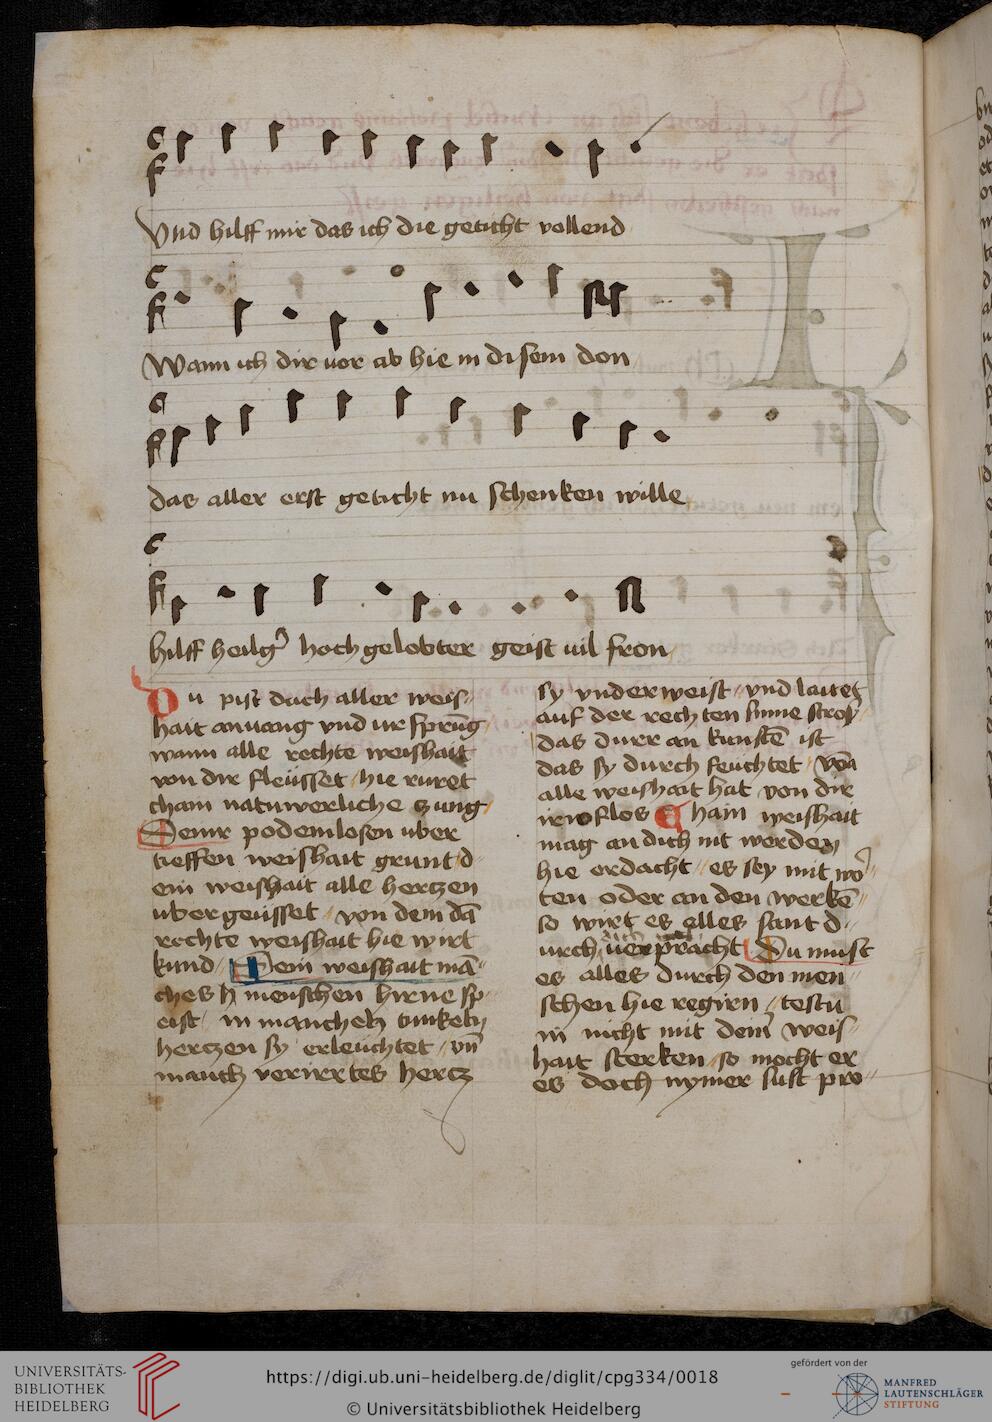 Vnd hilff mir das ich die geticht vollend
Wann ich dir vor ab hie in disem don
das aller erst geticht nu schenken wille
hilff heilgr̄ hoch gelobter geist vil fron
Du pist doch aller weis-
hait anuang vnd vr sprūg
wann alle rechte weishait
von dir fleüsset hie ruret
cham naturwerliche zung
Deinr podemlosen vber
tieffen weishait grunt d-
ein weishait alle herczen
vbergeüsset von dem dā
rechte weishait hie wirt
kund Dein weishait mā-
ches menschen hirne sp-
eist in manchen tunkeln
herczen sy erleuchtet vn̄
manch verirrtes hercz
sy vnderweist vnd laitet
auf der rechten sinne stros
das durr an kunstē ist
das sy durch feuchtet von
alle weishait hat von dir
iren flos Cham weishait
mag an dich nit werden
hie erdacht es sey mit wor̄
ten oder an den werkē
so wirt es alles sant d-
urch verpracht Du must
es alles durch den men
schen hie regirn testu
in nicht mit deinr̄ weis-
hait sterken so mocht er
es doch nymer sust pro-
UNIVERSITÄTS-
BIBLIOTHEK
HEIDELBERG
https://digi.ub.uni-heidelberg.de/diglit/cpg334/0018
© Universitätsbibliothek Heidelberg
gefördert von der
MANFRED
LAUTENSCHLÄGER
STIFTUNG